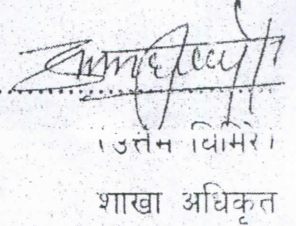 (उत्तम घिमिरे)
शाखा अधिकृत